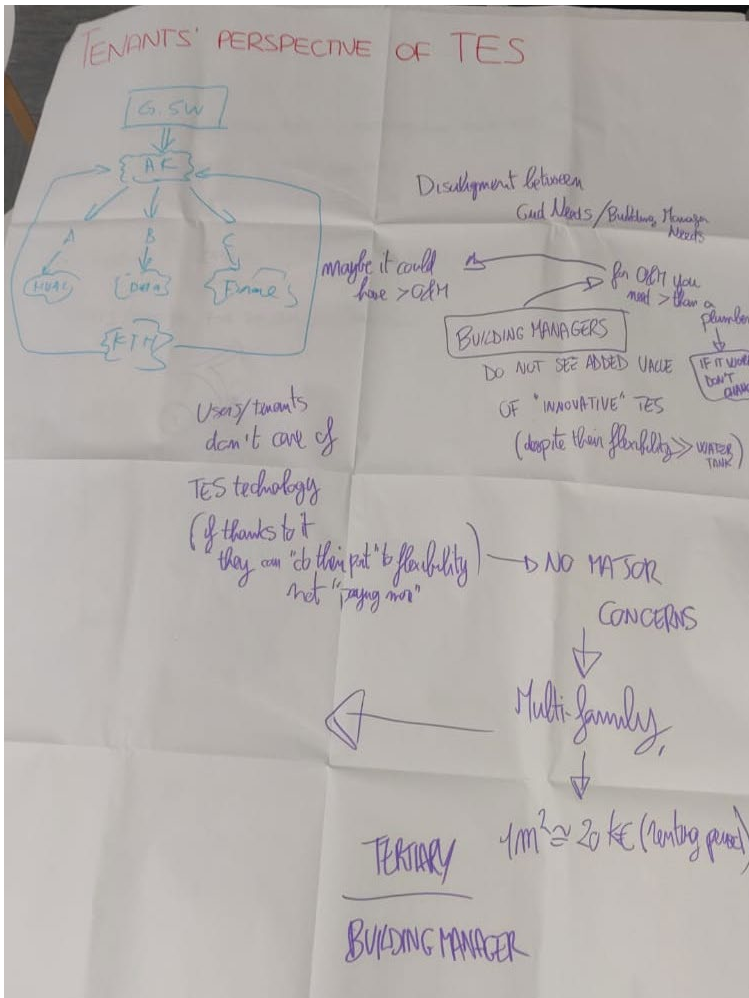 TENANTS' PERSPECTIVE OF TES
G.SW
AK
A
B
C
HVAC
KTH
Disaligment between
Grid Needs/Building Manager
Needs
maybe it could
have >O&M
for O&M you
need > than a
plumber
BUILDING MANAGERS
IF IT WORK
DON'T
CHANG
DO NOT SEE ADDED VALUE
OF "INNOVATIVE" TES
(despite their flexibility >> WATER
TANK)
Users/tenants
don't care of
TES technology
(if thanks to it
they can "do their part" to flexibility)
not "paying more"
NO MAJOR
CONCERNS
Multi-family,
1m² ≅ 20 k€ (renting period)
TERTIARY
BUILDING MANAGER